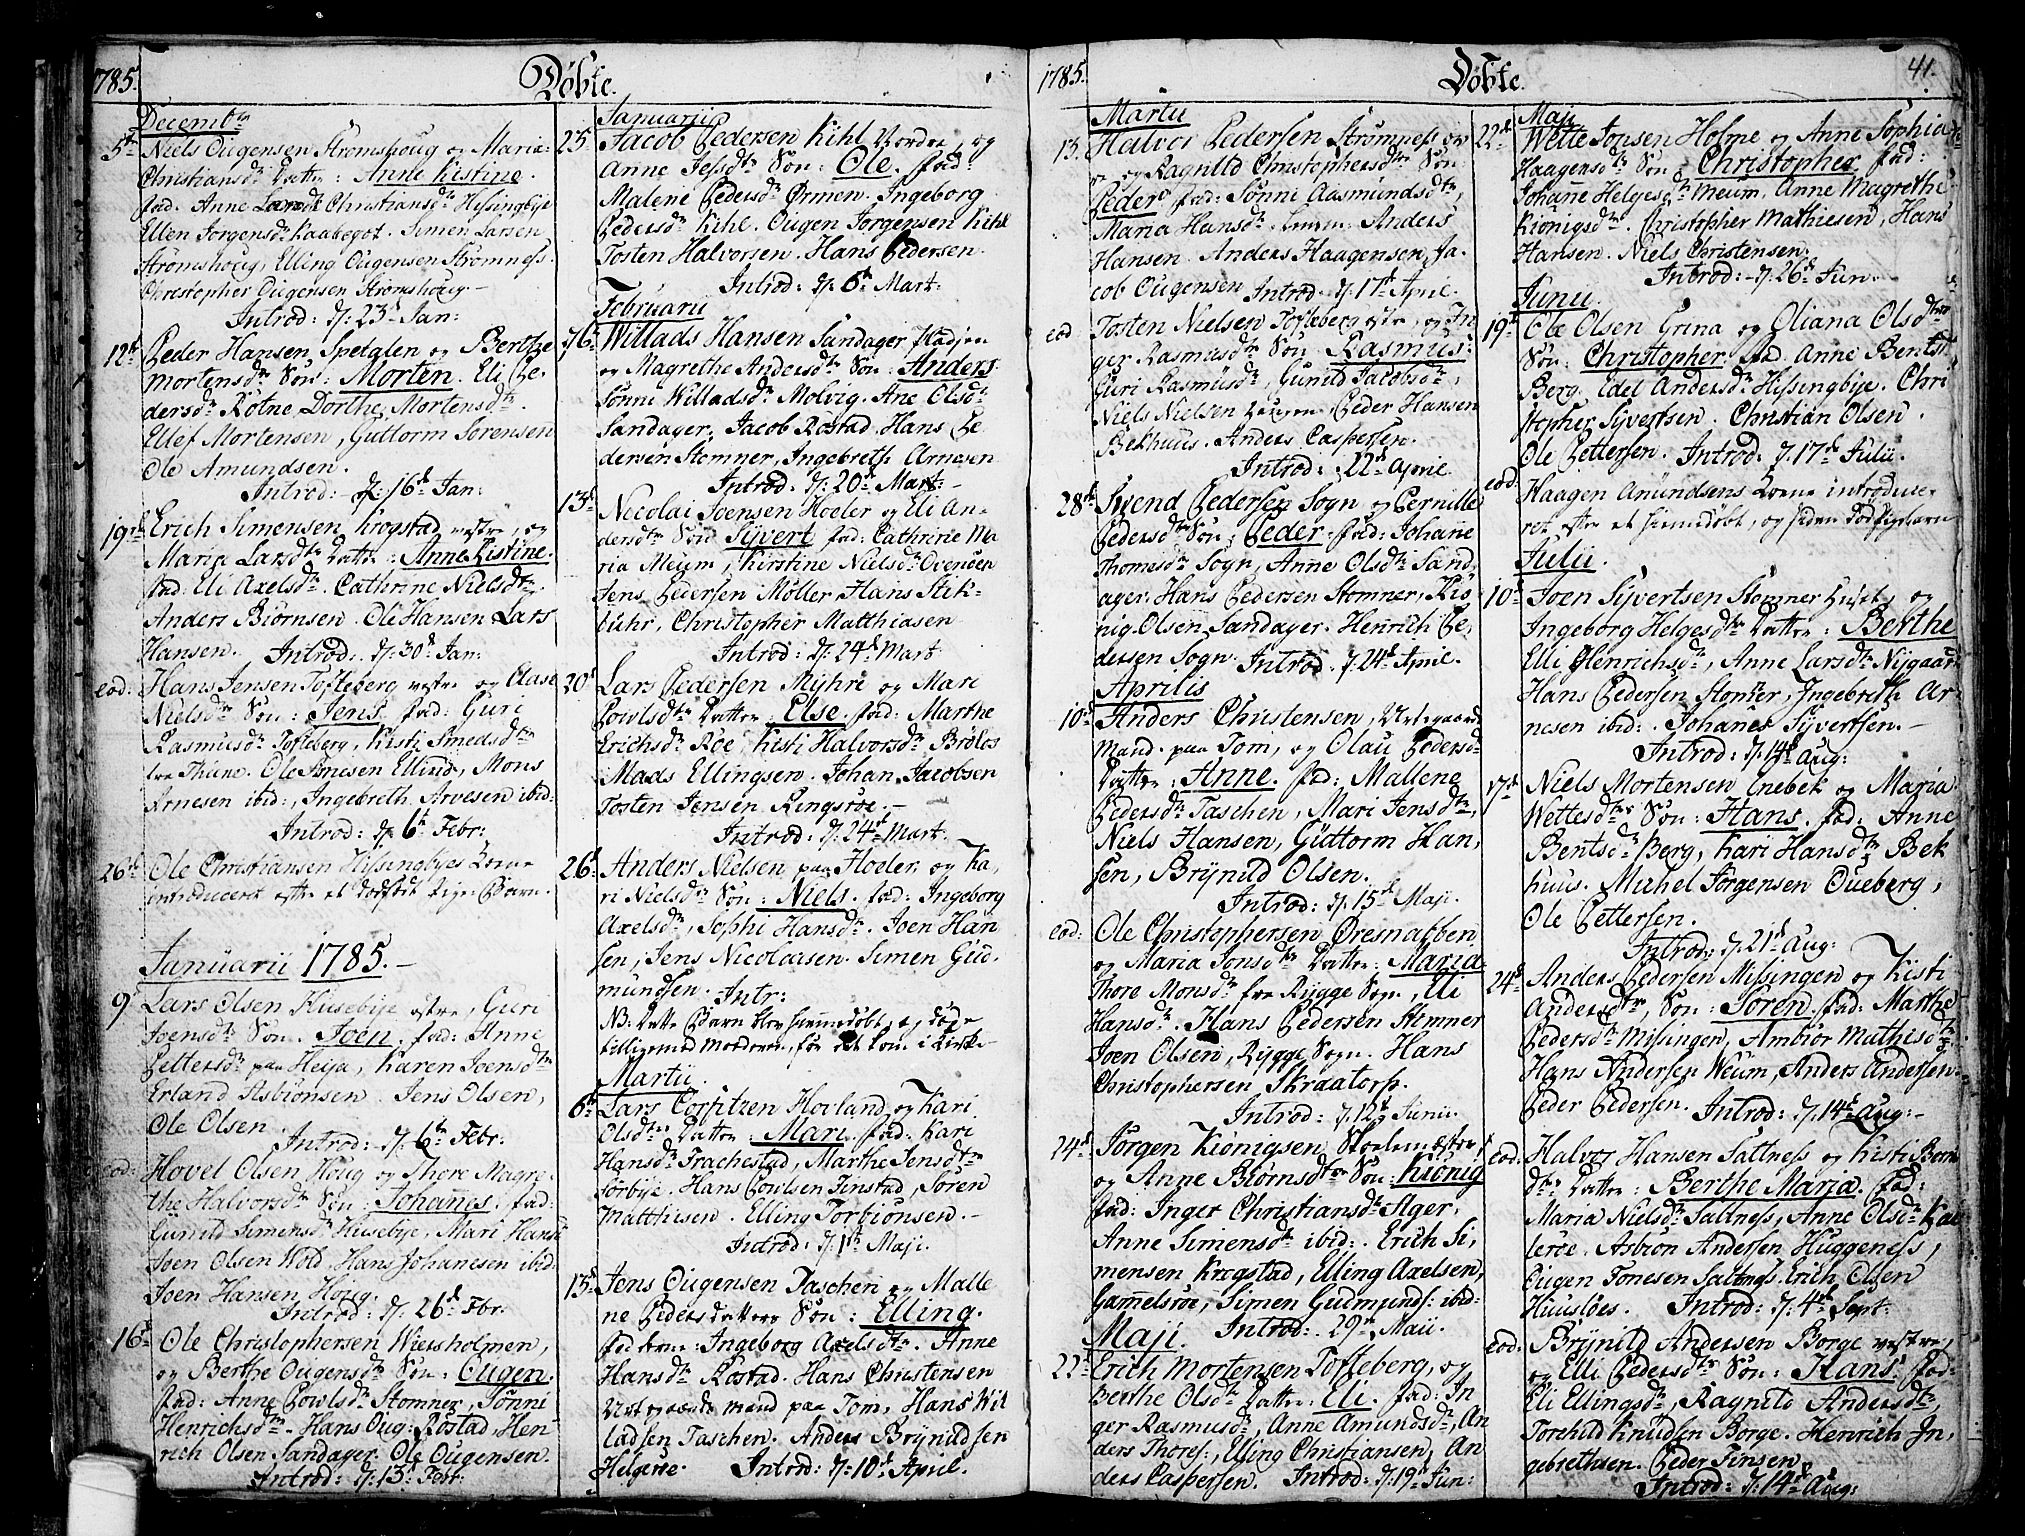 1785. Döbte.
Decembr
5te Niels Ougensen Strömshoug og Maria
Christiansdr Datter: Anne Kistine.
fad. Anne Christiansdr Hissingbye
Ellen Jörgensdr Kaabegot. Simen Larsen
Strömshoug, Elling Ougensen Strömness.
Christopher Ougensen Strömshoug -
Introd: d: 23d Jan:
12te Peder Hansen Spetalen og Berthe
Mortensdr Sön: Morten. Eli Pe-
dersdr Kotne Dorthe Mortensdr.
Ellef Mortensen, Guttorm Sörensen
Ole Amundsen.
Introd: - d: 16d Jan:
19de Erich Simensen Krogstad vestre, og
Maria Larsdr Datter: Anne Kistine.
fad: Eli Axelsdr. Cathrine Nielsdr
Anders Biörnsen. Ole Hansen Lars
Hansen. Introd: d: 30d Jan:
eod: Hans Jensen Tofteberg vestre og Else
Nielsdr Sön: Jens. fad: Guri
Rasmusdr Tofteberg, Kisti Smedsdr
fra Thiune. Ole Tonisen Ellind, Mons
Arnesen ibid:, Ingebreth Arnesen ibid:
Introd: d: 6t Febr:
26d Ole Christiansen Hissingbyes Kone
introduceret efter et dödfödt Pige Barn.
Januarii 1785. -
9de Lars Olsen Husebye östre, Guri
Joensdr Sön. Joen. fad: Anne
Pettersdr paa Heija, Karen Joensdr
Erland Asbiönsen. Jens Olsen,
Ole Olsen. Introd: - d: 6te Febr:
eod: Hovel Olsen Houg og Thore Magre-
the Halvorsdr Sön: Johanes. fad:
Gunild Simensdr Husebije, Mari Hansd
Joen Olsen Wold, Hans Johanesen ibid:
Joen Hansen Houg.
Introd: d: 26d Febr:
16d Ole Christophersen Wiersholmen,
og Berthe Ougensdr Sön: Ougen.
fad: Anne Powlsdr Stomner, Sönni
Henrichsdr. Hans Oug: Rostad, Hen-
rich Olsen Sandager. Ole Ougensen.
Introd: d: 13d Febr:
Januarii
25. Jacob Pedersen Kihl Nordre, og
Anne Jessdr Sön: Ole. fad:
Malene Pedersdr Örmen. Ingeborg
Pedersdr Kihl. Ougen Jörgensen Kihl
Tosten Halvorsen. Hans Pedersen.
Introd: d: 6te Mart:
Februarii
6te Willads Hansen Sandager pladsen
og Magrethe Andersdr Sön: Anders
Sönni Willadsdr Molvig. Ane Olsdr
Sandager. Jacob Rostad. Hans Pe-
dersen Stomner, Ingebreth Arnesen
Introd: d: 20d Mart: -
13d Nicolai Joensen Hoeler og Eli An-
dersdr Sön: Syvert. fad: Cathrine Ma-
ria Meum, Kirstine Nielsdr Ovenöen
Jens Pedersen Möller Hans Stik-
buhr, Christopher Matthiasen
Introd: d: 24d Mart
20d Lars Pedersen Myhre og Mari
Powlsdr Datter: Else. fad: Marthe
Erichsdr Roe, Kisti Halvorsdr Brölos
Mads Ellingsen. Johan Jacobsen
Tosten Jensen Ringsröe. -
Introd: d: 24d Mart:
26d Anders Nielsen paa Hoeler, og Ka-
ri Nielsdr Sön: Niels. fad: Ingeborg
Axelsdr, Sophi Hansdr. Joen Han-
sen, Jens Nicolaisen. Simen Gud-
mundsen. Intr:
NB: Dette Barn blev hiemmedöbt, og döde
tilligemed Moderen, för det kom i Kirke -
Martii.
6te Lars Corfitzen Hovland og Kari
Olsdr Datter: Mari. fad: Kari
Hansdr Frachestad, Marthe Jensdr
Sörbye. Hans Powlsen Finstad, Sören
Matthiesen. Elling Torbiönsen. -
Introd: d: 1te Maji.
13d Jens Ougensen Taschen og Malle-
ne Pedersdatters Sön: Elling.
fadderne: Ingeborg Axelsdr. Anne
Hansdr Rostad. Hans Christensen
Urtegaards mand paa Tom, Hans Wil
ladsen Taschen. Anders Brynildsen
Helgeröe. Introd: d: 10d April.
1785. Döbte. 41.
Martii
13. Halvor Pedersen Strömness
og Ragnild Christophersdr Sön
Peder fad: Sönni Aasmundsdr,
Maria Hansdr. Anders
Hansen. Anders Haagensen, Ja-
cob Ougensen Introd: d: 17d April.
eod Tosten Nielsen Tofteberg östre, og In-
ger Rasmusdr Sön. Rasmus:
Guri Rasmusdr, Gunild Jacobsdr,
Niels Nielsen Haugen. Peder Hansen
Bekhuus. Anders Caspersen.
Introd: 22d April
28de Svend Pedersen Sogn og Pernille
Pedersdr Sön: Peder. fad: Johane
Thomesdr Sogn, Anne Olsdr Sand-
ager. Hans Pedersen Stomner, Kiö-
nig Olsen Sandager. Henrich Pe-
dersen Sogn. Introd. d. 24d April.
Aprilis
10d Anders Christensen, Urtegaards
mand paa Tom, og Olau Pedersdr
Datter: Anne. fad: Mallene
Pedersdr Taschen, Mari Jensdr,
Niels Hansen, Guttorm Han-
sen, Brynild Olsen.
Introd: d: 15d Maji.
eod: Ole Christophersen Oresnabben
og Maria Jonsdr Datter: Maria.
Thore Monsdr fra Rygge Sogn, Eli
Hansdr. Hans Pedersen Stomner
Joen Olsen, Rygge Sogn. Hans
Christophersen Skraatorp.
Introd: d. 12d Junii.
24d Jörgen Kiönigsen
og Anne Biörnsdr Sön: Kiönig
fad: Inger Christiansdr Ager,
Anne Simensdr ibid: Erich Si-
mensen Krogstad, Elling Axelsen,
Gamelsröe, Simen Gudmunds: ibid:
Introd: 29d Maii.
Maji.
22d Erich Mortensen Tofteberg, og
Berthe Olsdr Datter: Eli. fad: In-
ger Rasmusdr, Anne Amundsdr, An
ders Thores:, Elling Christiansen, An
ders Caspersen. Introd: d: 19d Jun:
Maji
22d Wette Jonsen Holme og Anne Sophia
Haagensdr Sön: Christopher fad:
Johane Helgesdr Meum. Anne Magrethe
Kiönigsdr. Christopher Mathiesen, Hans
Hansen. Niels Christensen.
Introd: - d. 26d Jun. -
Junii
19de Ole Olsen Grina og Oliana Olsdr
Sön: Christopher fad Anne Bentsdr
Berg. Edel Andersdr Hissingbye. Chri
stopher Syvertsen. Christian Olsen.
Ole Pettersen. Introd. d. 17d Julii.
eod: Haagen Amundsens Kone introduce-
ret efter et hiemmedöbt, og siden
Julii
10d Joen Syvertsen Stomner og
Ingeborg Helgesdr Datter: Berthe
Elli Henrichsdr, Anne Larsdr Nygaar
Hans Pedersen Stomner, Ingebreth Ar-
nesen ibid:. Johanes Syvertsen. -
Introd: d. 14d Aug:
17de Niels Mortensen Enebek og Maria
Wettesdrs Sön: Hans. fad: Anne
Bentsdr Berg, Kari Hansdr Bek
huus. Michel Jörgensen Oueberg,
Ole Pettersen.
Introd: d. 21d Aug:
24d Anders Pedersen Missingen og Kisti
Andersdr, Sön: Sören. fad: Marthe
Pedersdr Missingen, Ambiör Mathisdr
Hans Andersen Weum, Anders Andersen.
Peder Pedersen. Introd: d. 14d Aug: -
eod: Halvor Hansen Saltness og Kisti
dr: Datter: Berthe Maria. fad:
Maria Nielsdr Saltness, Anne Olsdr Kal
leröe. Asbiörn Andersen Huggeness,
Ougen Tonesen Saltness. Erich Olsen
Huuslöes. Introd: d: 4d Sept:
eod: Brynild Andersen Borge vestre,
og Elli Pedersdr Sön: Hans. fad:
Eli Ellingsdr, Ragnild Andersdr,
Torchild Knudsen Borge. Henrich In-
gebrethsen. Peder Jensen.
Introd: d: 14d Aug: